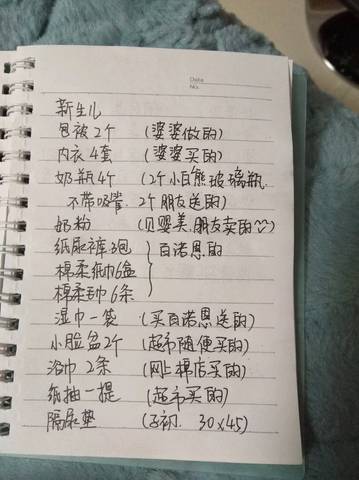 Date
No.
新生儿
包被2个 (婆婆做的)
内衣4套 (婆婆买的)
奶瓶4个 (2个小白熊玻璃瓶.
不带吸管. 2个朋友送的)
奶粉 (贝婴美.朋友卖的
纸尿裤3包 百诺恩的
棉柔纸巾6盒
棉柔巾6条
湿巾一袋 (买百诺恩送的)
小脸盆2个 (超市随便买的)
浴巾2条 (网上棉店买的)
纸抽一提 (超市买的)
隔尿垫 (子初. 30x45)